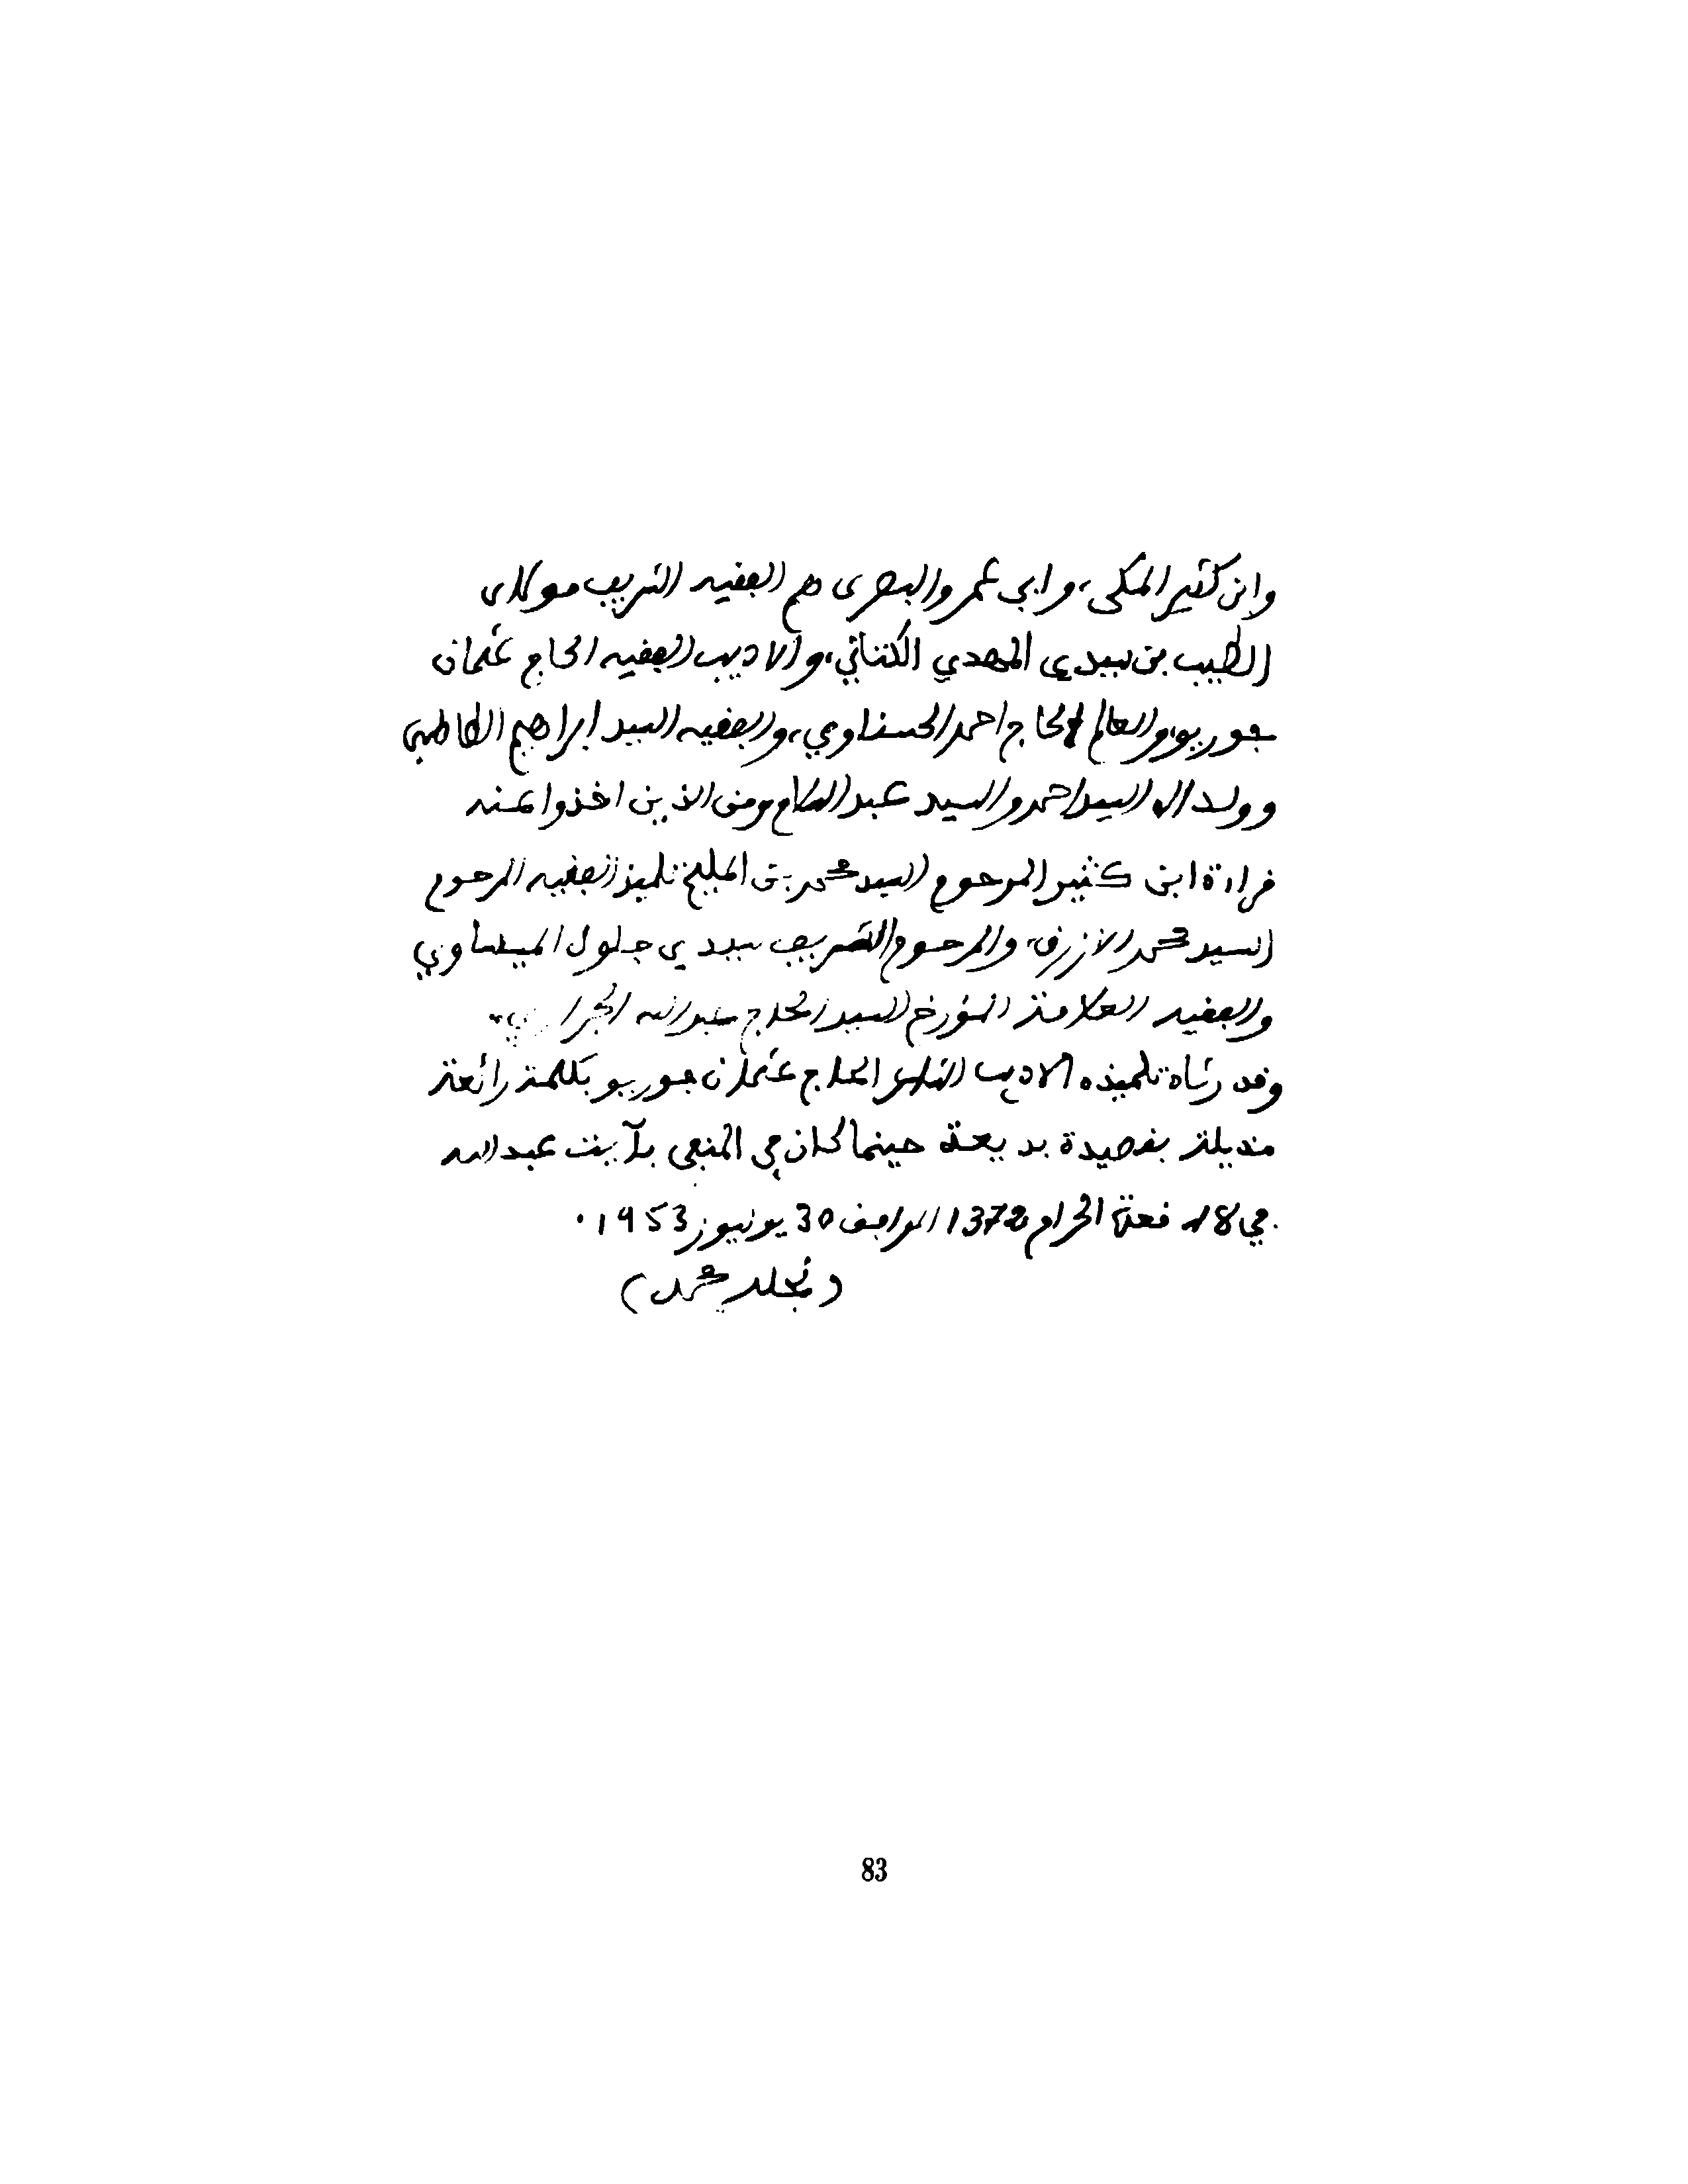 وابن كثير المكى، وابي عمرو البصرى هم الفقيه الشريف مولاى
الطيب بن سيدي المهدي الكتاني، والاديب الفقيه الحاج عثمان
جوريو، والعالم الحاج احمد الحسناوي، والفقيه السيد ابراهيم
وولداه السيد احمد والسيد عبد السلام ومن الذين اخذوا عنه
قراءة ابن كثير المرحوم السيد محمد بن المليح تلميذ الفقيه المرحوم
السيد محمد الازرق، والمرحوم الشريف سيدي جلول الميساوي
والفقيه العلامة المؤرخ السيد الحاج عبد الله الجراري.
وقد رثاه تلميذه الاديب الحاج عثمان جوريو بكلمة رائعة
مذيلة بقصيدة بديعة حينما كان في المنفى بآيت عبد الله
في 18 قعدة الحرام 1372 الموافق 30 يونيوز 1953.
(نجله محمد)
83